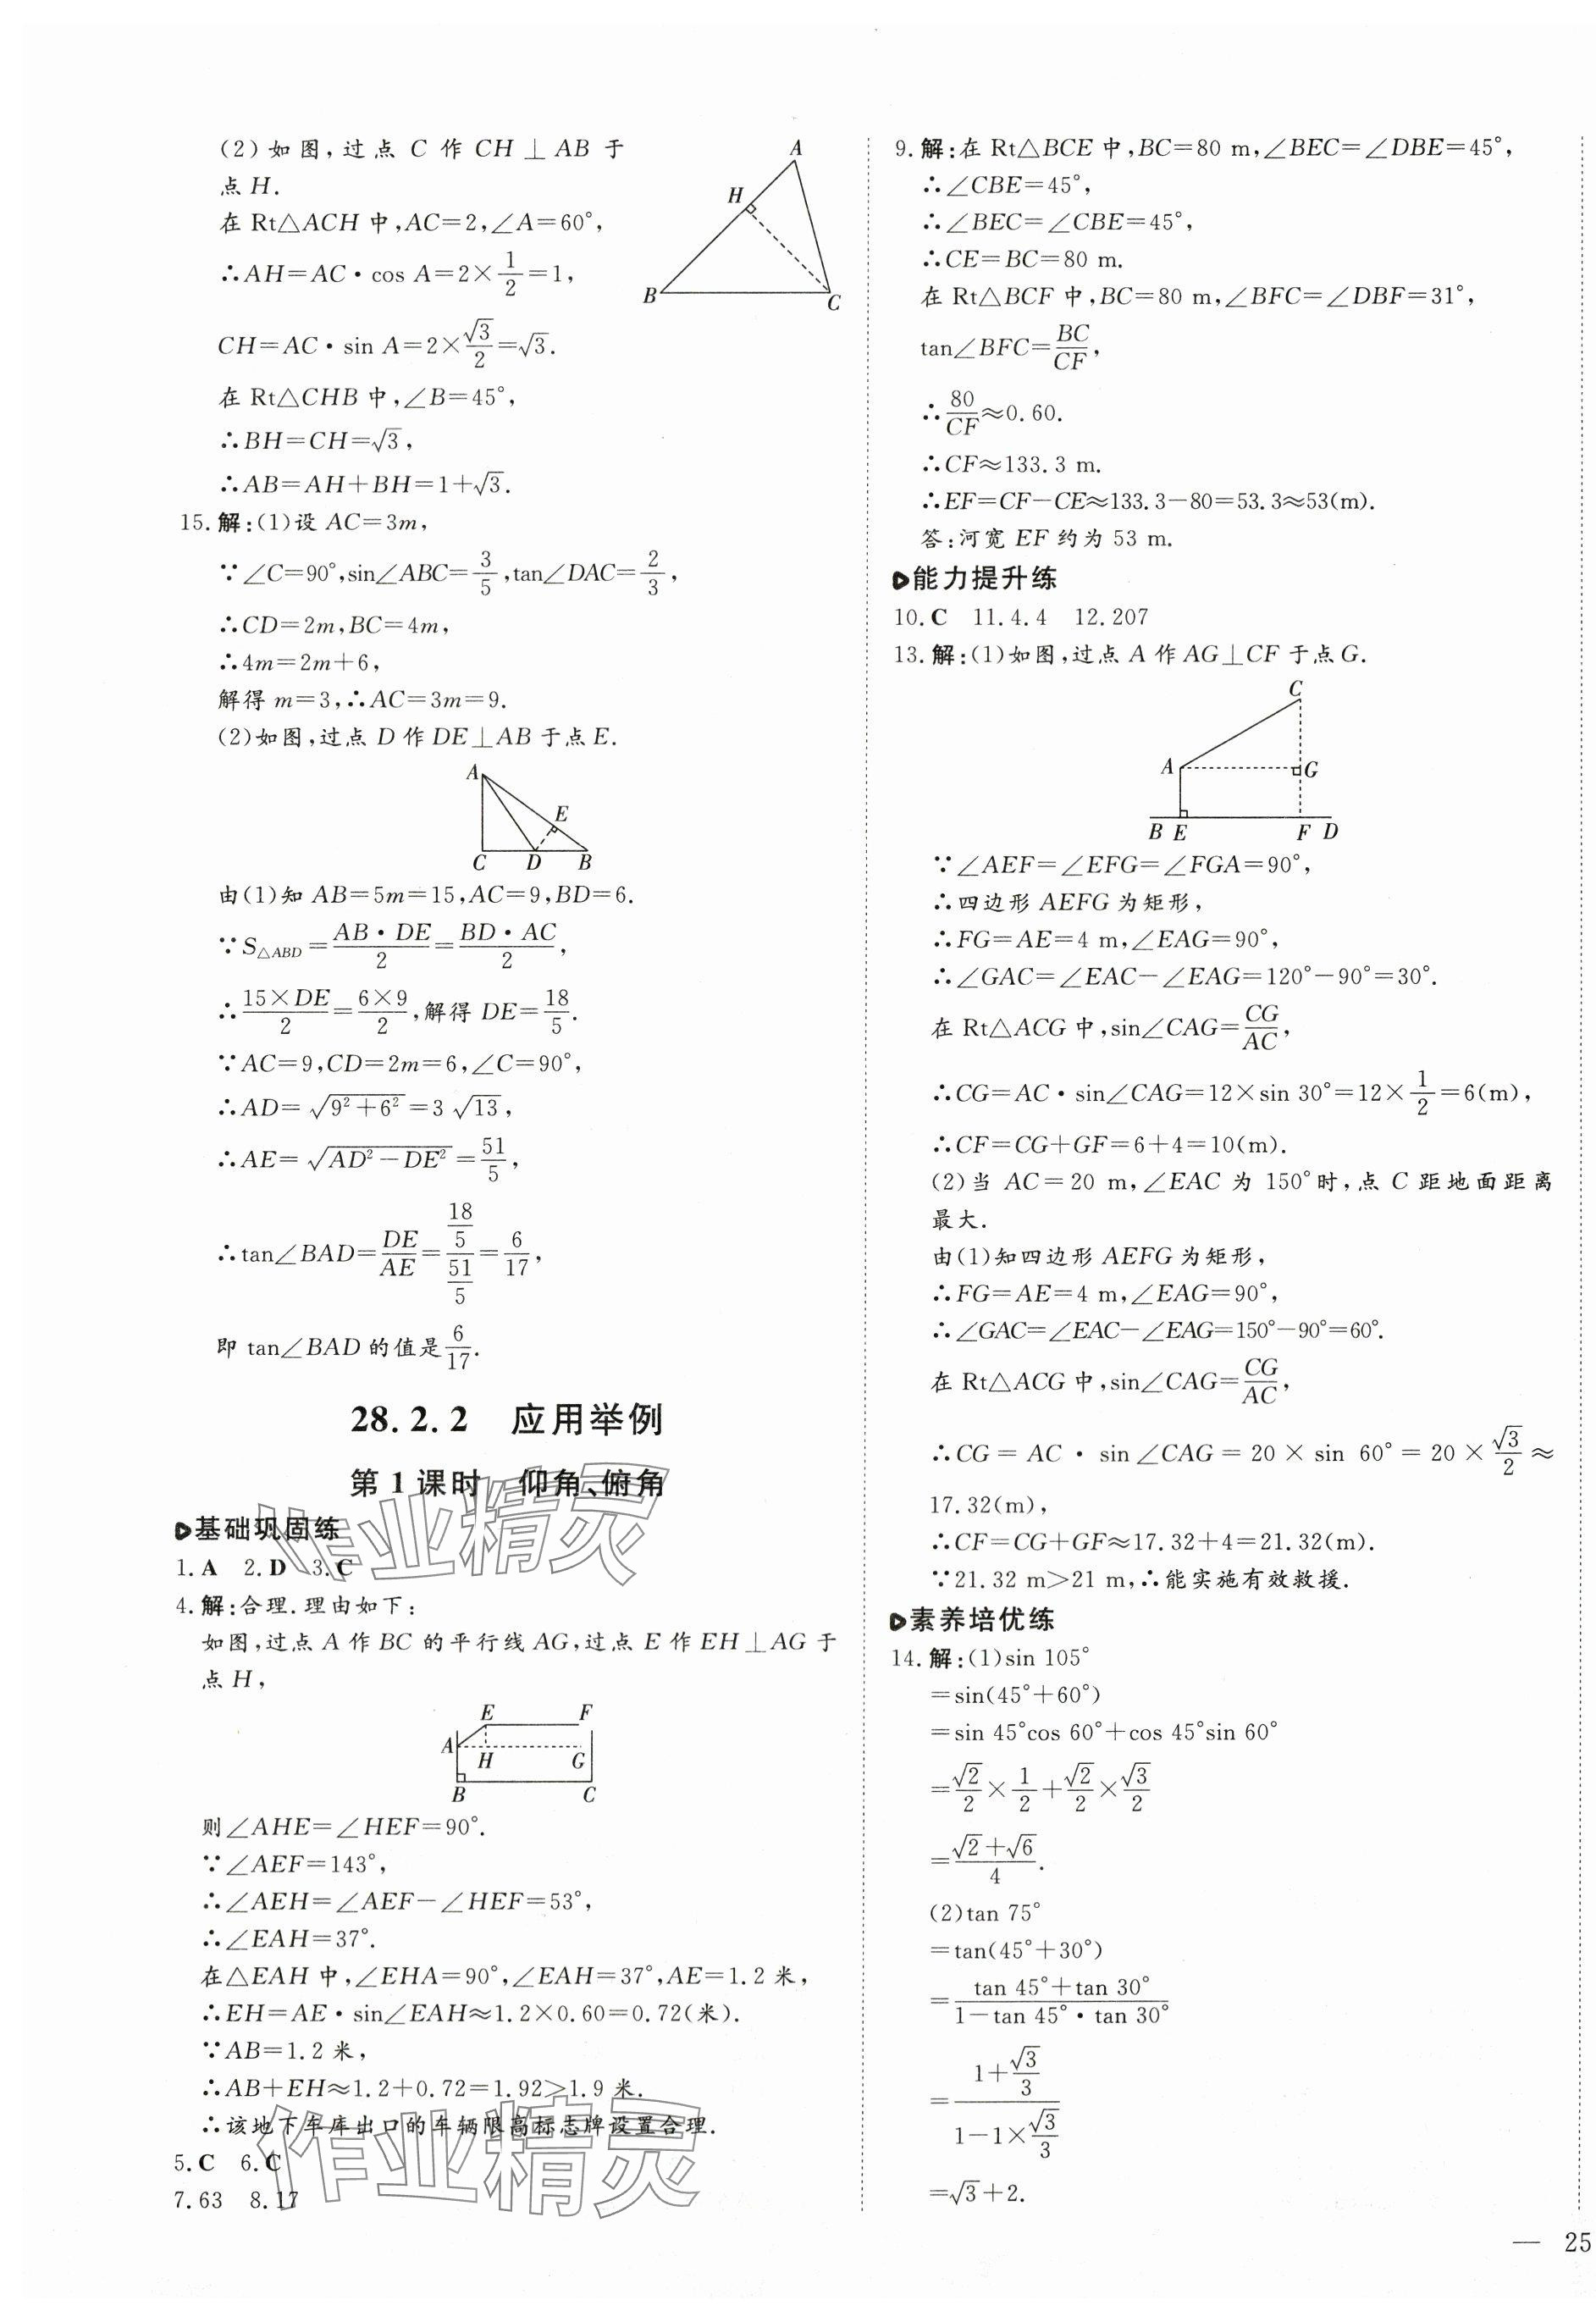 (2)如图,过点 C 作 CH⊥AB 于
点 H.
在 Rt△ACH 中,AC=2,∠A=60°,
∴AH=AC·cos A=2×1/2=1,
CH=AC·sin A=2×√3/2=√3.
在 Rt△CHB 中,∠B=45°,
∴BH=CH=√3,
∴AB=AH+BH=1+√3.
A
H
B
C
15.解:(1)设 AC=3m,
∵∠C=90°,sin∠ABC=3/5,tan∠DAC=2/3,
∴CD=2m,BC=4m,
∴4m=2m+6,
解得 m=3,∴AC=3m=9.
(2)如图,过点 D 作 DE⊥AB 于点 E.
A
E
C D B
由(1)知 AB=5m=15,AC=9,BD=6.
∵S△ABD=AB·DE/2=BD·AC/2,
∴15×DE/2=6×9/2,解得 DE=18/5.
∵AC=9,CD=2m=6,∠C=90°,
∴AD=√(9²+6²)=3√13,
∴AE=√(AD²-DE²)=51/5,
∴tan∠BAD=DE/AE=(18/5)/(51/5)=6/17,
即 tan∠BAD 的值是6/17.
28.2.2 应用举例
第 1 课时 仰角、俯角
基础巩固练
1.A 2.D 3.C
4.解:合理.理由如下:
如图,过点 A 作 BC 的平行线 AG,过点 E 作 EH⊥AG 于
点 H,
E F
A H G
B C
则∠AHE=∠HEF=90°.
∵∠AEF=143°,
∴∠AEH=∠AEF-∠HEF=53°,
∴∠EAH=37°.
在△EAH 中,∠EHA=90°,∠EAH=37°,AE=1.2 米,
∴EH=AE·sin∠EAH≈1.2×0.60=0.72(米).
∵AB=1.2 米,
∴AB+EH≈1.2+0.72=1.92>1.9 米.
∴该地下车库出口的车辆限高标志牌设置合理.
5.C 6.C
7.63 8.17
作业精灵
作业精灵
9.解:在 Rt△BCE 中,BC=80 m,∠BEC=∠DBE=45°,
∴∠CBE=45°,
∴∠BEC=∠CBE=45°,
∴CE=BC=80 m.
在 Rt△BCF 中,BC=80 m,∠BFC=∠DBF=31°,
tan∠BFC=BC/CF,
∴80/CF≈0.60.
∴CF≈133.3 m.
∴EF=CF-CE≈133.3-80=53.3≈53(m).
答:河宽 EF 约为 53 m.
能力提升练
10.C 11.4.4 12.207
13.解:(1)如图,过点 A 作 AG⊥CF 于点 G.
C
A G
B E F D
∵∠AEF=∠EFG=∠FGA=90°,
∴四边形 AEFG 为矩形,
∴FG=AE=4 m,∠EAG=90°,
∴∠GAC=∠EAC-∠EAG=120°-90°=30°.
在 Rt△ACG 中,sin∠CAG=CG/AC,
∴CG=AC·sin∠CAG=12×sin 30°=12×1/2=6(m),
∴CF=CG+GF=6+4=10(m).
(2)当 AC=20 m,∠EAC 为 150°时,点 C 距地面距离
最大.
由(1)知四边形 AEFG 为矩形,
∴FG=AE=4 m,∠EAG=90°,
∴∠GAC=∠EAC-∠EAG=150°-90°=60°.
在 Rt△ACG 中,sin∠CAG=CG/AC,
∴CG=AC·sin∠CAG=20×sin 60°=20×√3/2≈
17.32(m),
∴CF=CG+GF≈17.32+4=21.32(m).
∵21.32 m>21 m,∴能实施有效救援.
素养培优练
14.解:(1)sin 105°
=sin(45°+60°)
=sin 45°cos 60°+cos 45°sin 60°
=√2/2×1/2+√2/2×√3/2
=(√2+√6)/4.
(2)tan 75°
=tan(45°+30°)
=(tan 45°+tan 30°)/(1-tan 45°·tan 30°)
=(1+√3/3)/(1-1×√3/3)
=√3+2.
— 25